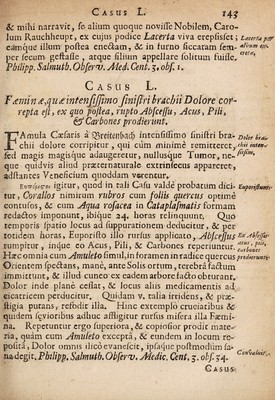 CASUS L. 143
& mihi narravit, se alium quoque novisse Nobilem, Caro-
lum Rauchheupt, ex cujus podice Lacerta viva erepsisset;
eamque illum postea enectam, & in furno siccaram sem-
per secum gestasse, atque filium appellare solitum fuisse.
Philipp. Salmuth. Observ. Med. Cent. 3. obs. 1.
Lacerta per
CASUS L.
Fæminæ, quæ intensissimo sinistri brachii Dolore cor-
repta est, ex quo postea, rupto Abscessu, Acus, Pili,
& Carbones prodierunt.
FAmula Cæsaris à Breitenbach intensissimo sinistri bra-
chii dolore corripitur, qui cùm minimè remitteret,
sed magis magisque adaugeretur, nullusque Tumor, ne-
que quidvis præternaturale extrinsecus appareret,
adstantes Veneficium quoddam verentur.
Dolor bra-
chii inten-
sissim.
igitur, quod in tali Casu valdè probatum dici-
tur, Corallos nimirum rubros cum foliis quercus optimè
contusos, & cum Aqua rosacea in Cataplasmatis formam
redactos imponunt, ibique 24. horas relinquunt. Quo
temporis spatio locus ad suppurationem deducitur, & per
totidem horas, Euporisto illo rursus applicato, Abscessus
rumpitur, inque eo Acus, Pili, & Carbones reperiuntur.
Hæc omnia cum Amuleto simul, in foramen in radice quercus
Orientem spectans, manè, ante Solis ortum, terebrâ factum
immittunt, & illud cuneo ex eadem arbore facto obturant.
Dolor inde planè cessat, & locus aliis medicamentis ad
cicatricem perducitur. Quidam v. talia irridens, & præ-
stigia putans, refodit illa. Hinc extemplò cruciatibus &
quidem sævioribus adhuc affligitur rursus misera illa Fæmi-
na. Repetuntur ergo superiora, & copiosior prodit mate-
ria, quâm cum Amuleto exceptâ, & eundem in locum re-
positâ, Dolor omnis illicò evanescit, ipsaque postmodùm sa-
na degit. Philipp. Salmuth. Observ. Medic. Cent. 3. obs. 34.
Ex Abscessu
acus, pili,
& carbones
prodierunt.
CASUS